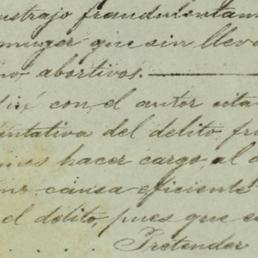 ustrajo fraudulentam
muger que sin lleva
no abortivos.
con el autor cita
entativa del delito fru
mos hacer cargo al a
causa eficiente
el delito, pues que e
Pretender